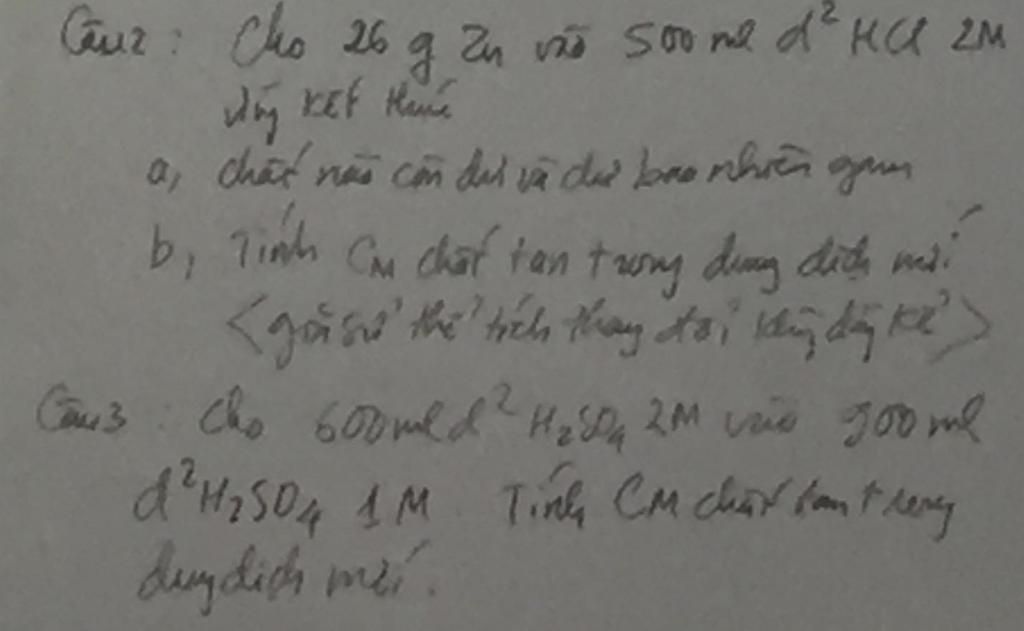 Câu 2 : Cho 26 g Zn vào 500 ml d² HCl 2M
kết thúc
a, chất nào còn dư và dư bao nhiêu gam
b, Tính CM chất tan trong dung dịch mới
<giả sử thể tích thay đổi không đáng kể>
Câu 3 : Cho 600 ml d² H₂SO₄ 2M vào 900 ml
d² H₂SO₄ 1M Tính CM chất tan trong
dung dịch mới.